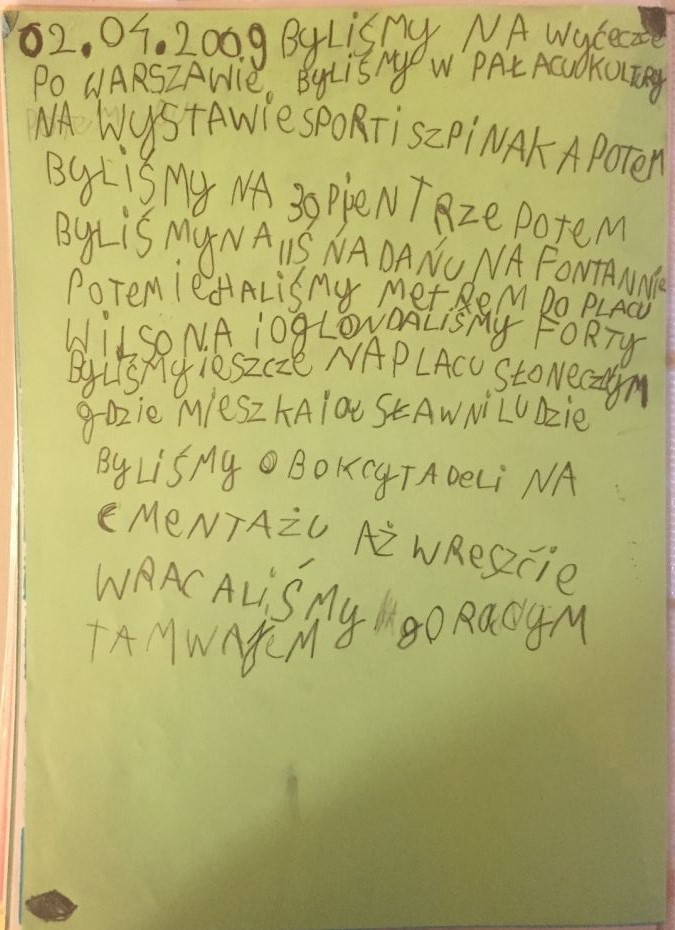 02.04.2009 BYLIŚMY NA WYĆECZCE
PO WARSZAWIE. BYLIŚMY W PAŁACU KULTURY
NA WYSTAWIE SPORT I SZPINAK A POTEM
BYLIŚMY NA 30 PIENTRZE POTEM
BYLIŚMY NA IIŚŃADAŃU NA FONTANNIE
POTEM IECHALIŚMY METREM DO PLACU
WILSONA I OGLONDALIŚMY FORTY
BYLIŚMY IESZCZE NA PLACU SŁONECZNYM
gDZIE MIESZKAIOŁ SŁAWNI LUDZIE
BYLIŚMY OBOK CYTADELI NA
CMENTAŻU AŻ WRESZĆIE
WRACALIŚMY gORĄCYM
TAMWAJEM